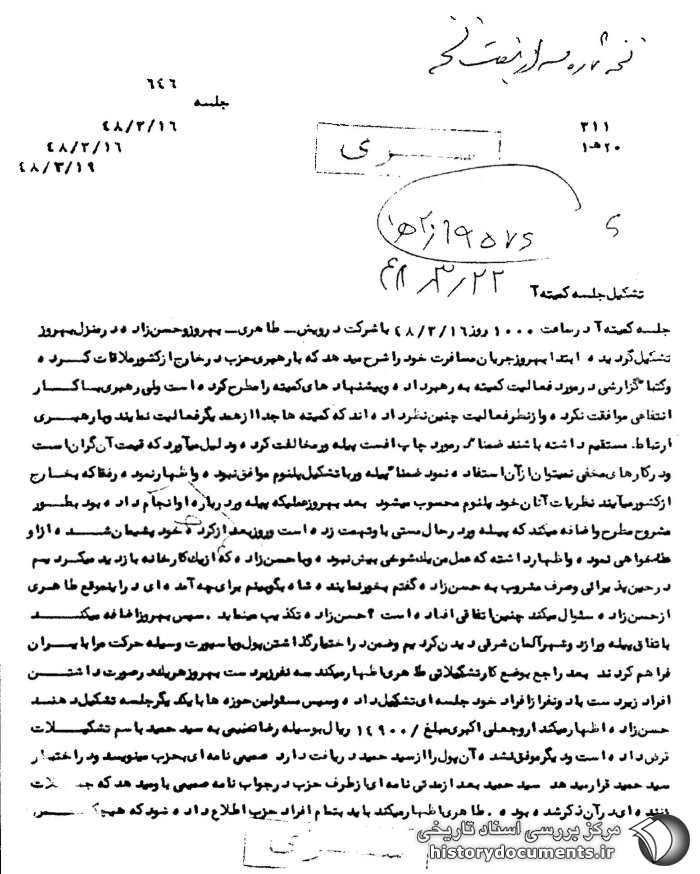 نسخه شماره سه از هفت نسخه
۶۴۶
جلسه
۴۸/۳/۱۶
۴۸/۳/۱۶
۴۸/۳/۱۹
۳۱۱
۲۰ ه‍ـ ۱
سری
۱۹۵۷۶/۲۰ه‍۱
۴۸/۳/۲۲
تشکیل جلسه کمیته ۲
جلسه کمیته ۲ در ساعت ۱۰۰۰ روز ۴۸/۳/۱۶ با شرکت درویش ـ طاهری ـ بهروز و حسن زاده در منزل بهروز
تشکیل گردیده ابتدا بهروز جریان مسافرت خود را شرح میدهد که با رهبری حزب در خارج از کشور ملاقات کرده
و کتبا" گزارشی در مورد فعالیت کمیته به رهبر داده و پیشنهادهای کمیته را مطرح کرده است ولی رهبری با کار
انتفاعی موافقت نکرده و از نظر فعالیت چنین نظر داده اند که کمیته ها جدا از همدیگر فعالیت نمایند و با رهبری
ارتباط مستقیم داشته باشند ضمنا" در مورد چاپ افست پیله ور مخالفت کرده و دلیل میآورد که قیمت آن گران است
و در کارهای مخفی نمیتوان از آن استفاده نمود ضمنا" پیله ور با تشکیل پلنوم موافق نبوده و اظهار نموده رفقا که بخارج
از کشور میآیند نظریات آنان خود پلنوم محسوب میشود بعد بهروز عملیکه پیله ور درباره او انجام داده بود بطور
مشروح مطرح و اضافه میکند که پیله ور در حال مستی باو تهمت زده است و روز بعد از کرده خود پشیمان شده از او
عذرخواهی نموده و اظهار داشته که عمل من یک شوخی بیش نبوده و با حسن زاده که از یک کارخانه بازدید میکردیم
در حین پذیرائی و صرف مشروب به حسن زاده گفتم بخور نماینده شاه بگو ببینم برای چه آمده ای در این موقع طاهری
از حسن زاده سئوال میکند چنین اتفاقی افتاده است ؟ حسن زاده تکذیب مینماید . سپس بهروز اضافه میکند
با تفاق پیله ور از دو شهر آلمان شرقی دیدن کردیم و ضمن در اختیار گذاشتن پول و پاسپورت وسیله حرکت مرا بایران
فراهم کردند بعد راجع بوضع کار تشکیلاتی طاهری اظهار میکند سه نفر زیر دست بهروز هر یک در صورت داشتن
افراد زیر دست باید و نفر از افراد خود جلسه ای تشکیل داده و سپس مسئولین حوزه ها با یکدیگر جلسه تشکیل دهند
حسن زاده اظهار میکند اروجعلی اکبری مبلغ /۱۴۹۰۰ ریال بوسیله رضا نضیمی به سید حمید باسم تشکیلات
قرض داده است و دیگر موفق نشده آن پول را از سید حمید دریافت دارد صمیمی نامه ای بحزب مینویسد و در اختیار
سید حمید قرار میدهد سید حمید بعد از مدتی نامه ای از طرف حزب در جواب نامه صمیمی باو میدهد که جملات
ای در آن ذکر شده بوده . طاهری اظهار میکند باید بتمام افراد حزب اطلاع داده شود که هیچ
سری
مرکز بررسی اسناد تاریخی
historydocuments.ir